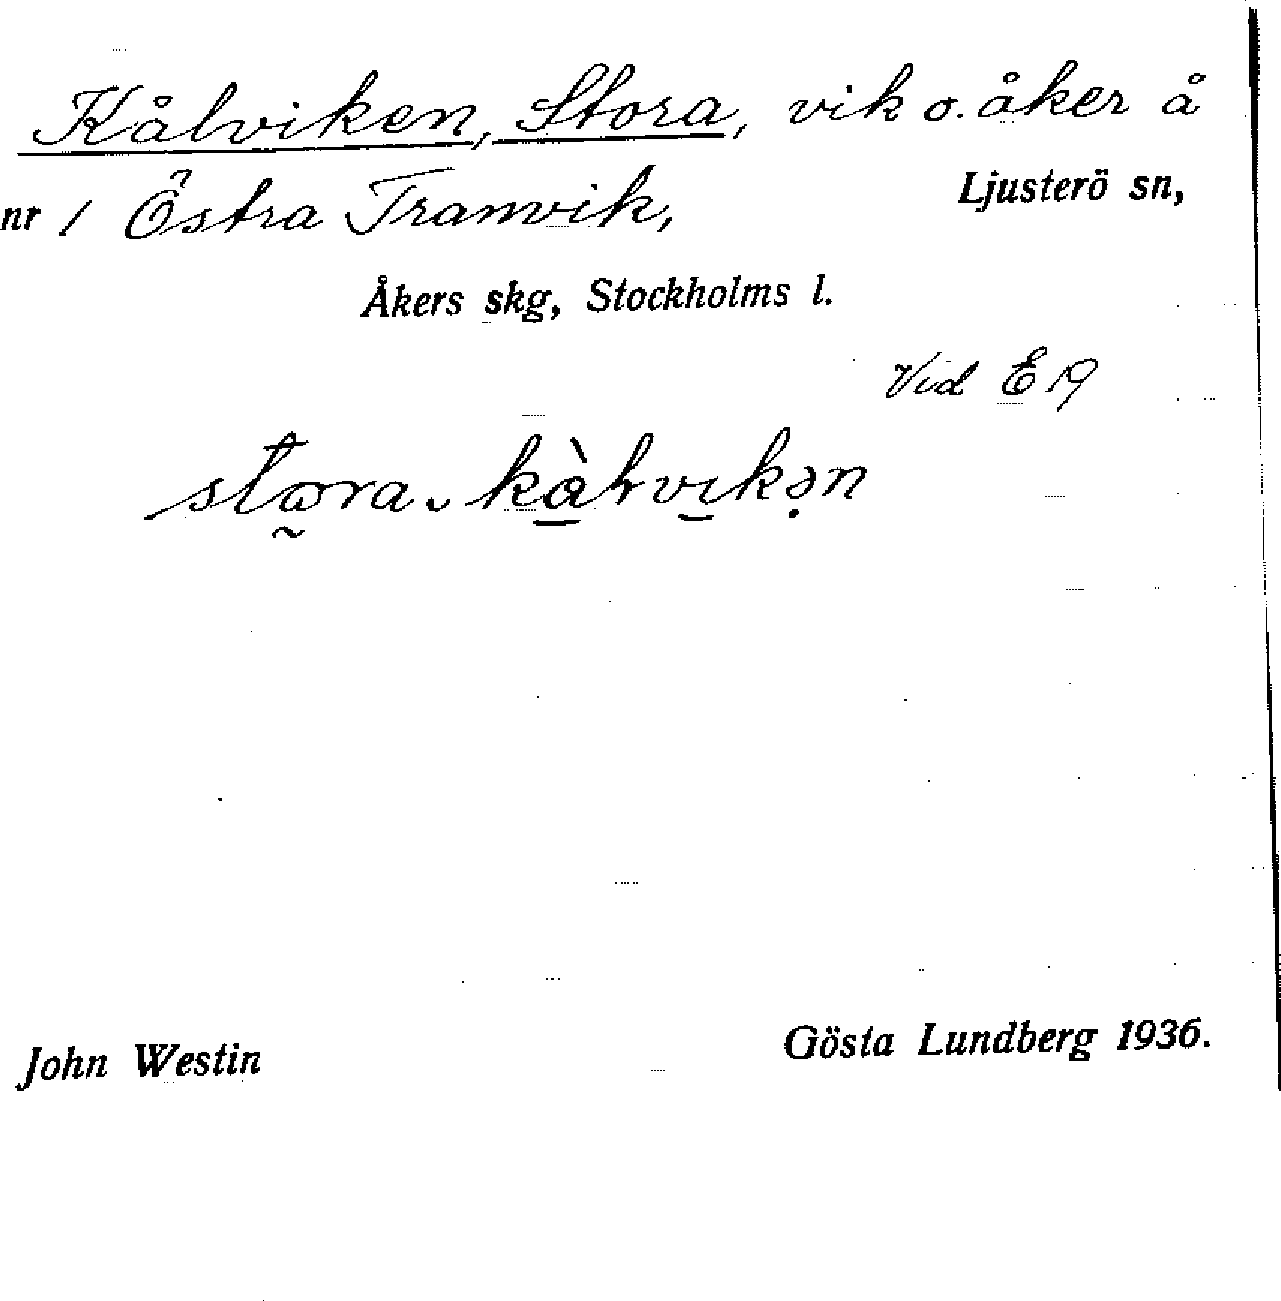 Kålviken, Stora, vik o. åker å
nr 1 Östra Tranvik, Ljusterö sn,
Åkers skg, Stockholms l.
Vid E19
stωra kàlvikən
John Westin Gösta Lundberg 1936.